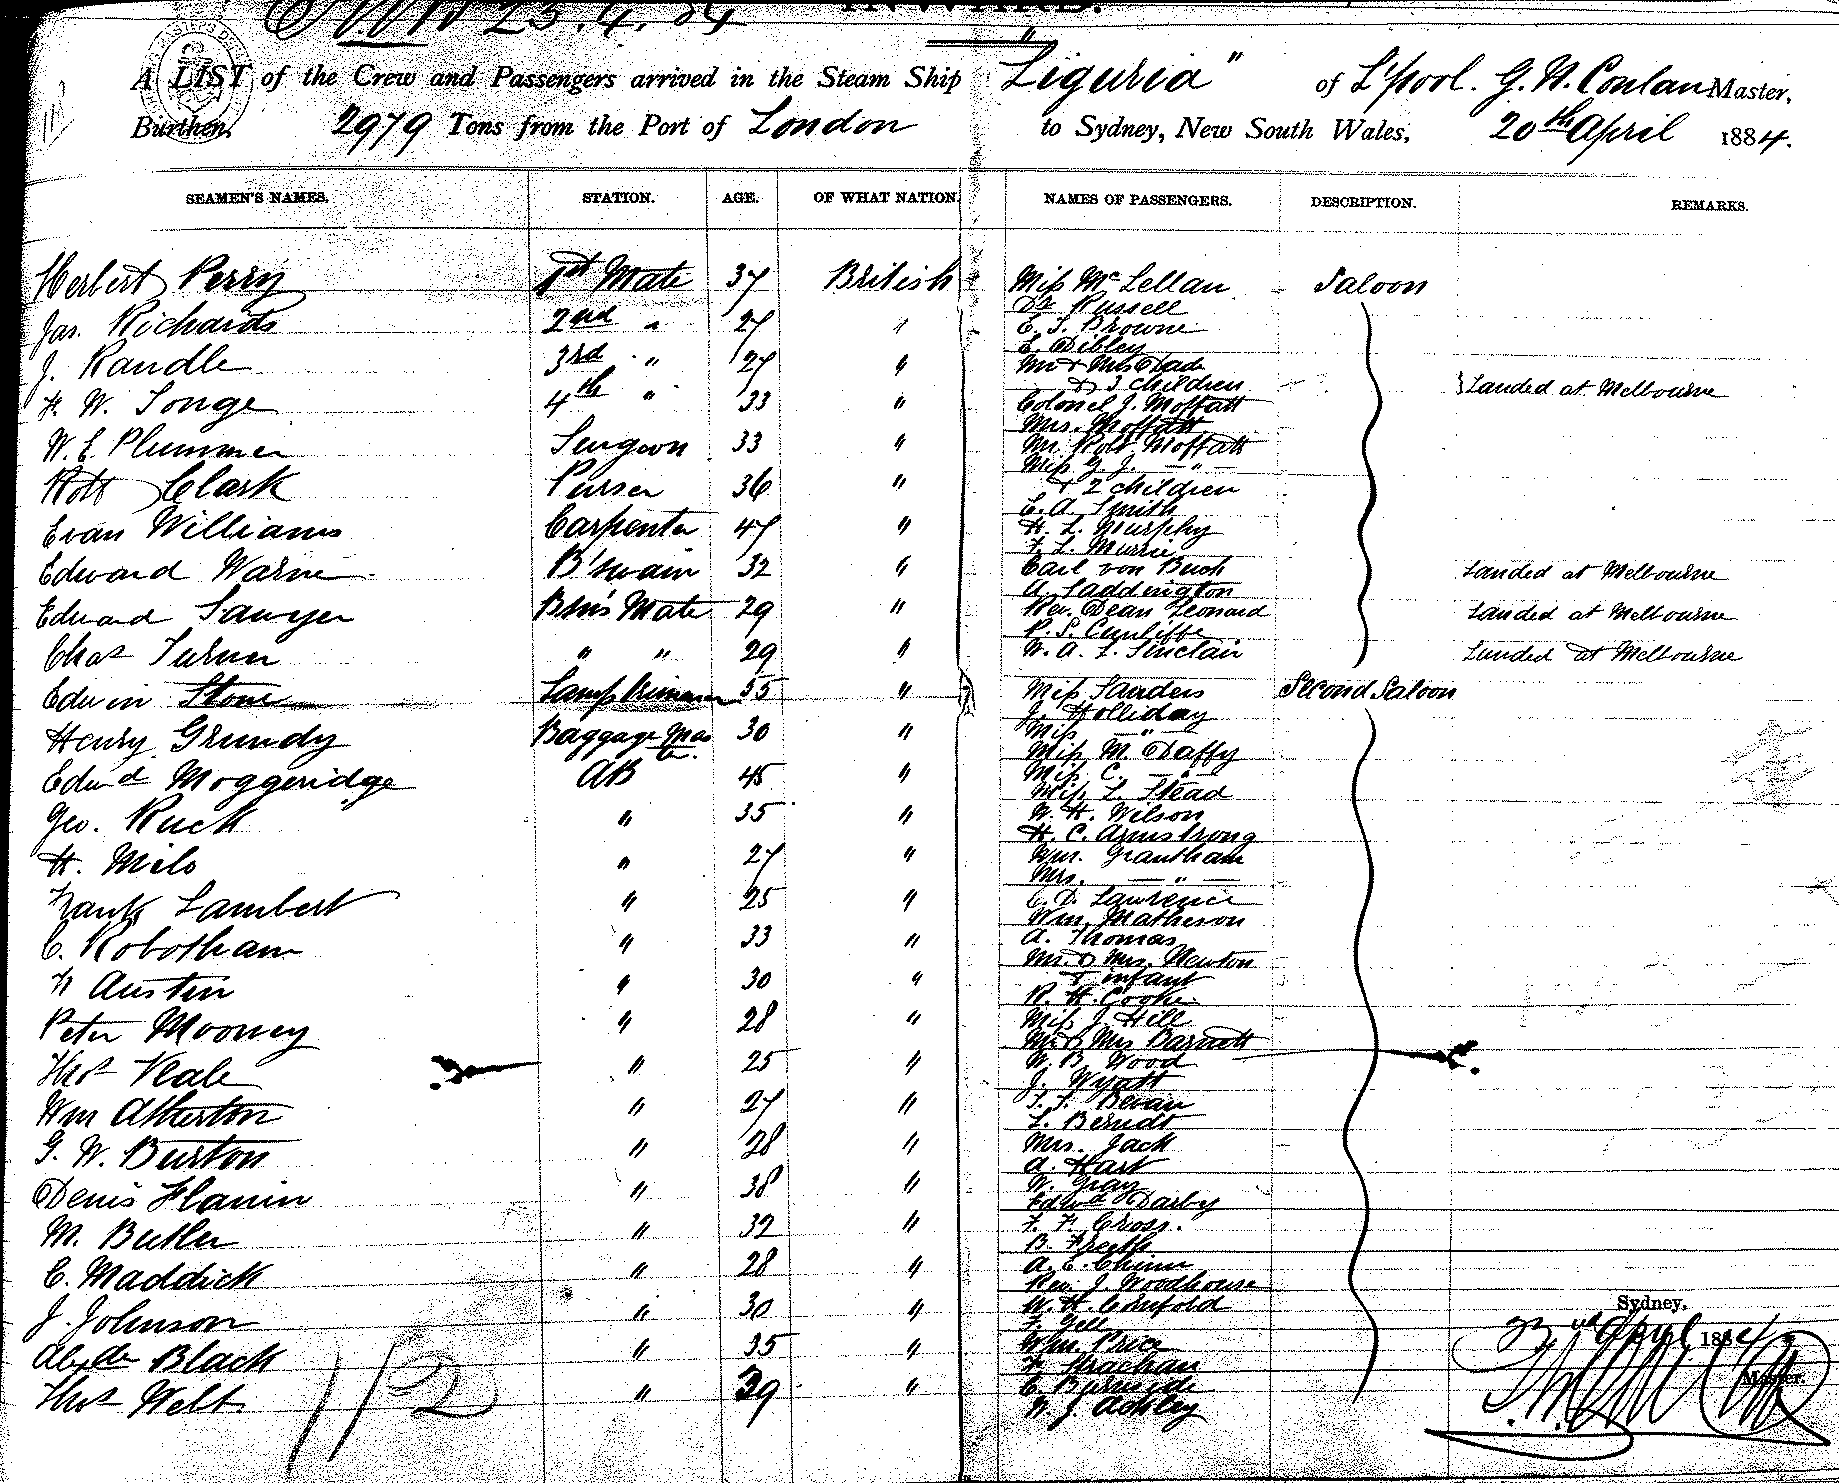 23.4.84
INWARD.
A LIST of the Crew and Passengers arrived in the Steam Ship "Liguria" of L'pool. G. N. Conlan Master,
Burthen, 2979 Tons from the Port of London to Sydney, New South Wales, 20th April 1884.
SEAMEN'S NAMES. STATION. AGE. OF WHAT NATION. NAMES OF PASSENGERS. DESCRIPTION. REMARKS.
Herbert Perry 1st Mate 37 British
Jas. Richards 2nd " 27 "
J. Randle 3rd " 27 "
F. W. Tonge 4th " 33 "
W. E. Plummer Surgeon 33 "
Robt Clark Purser 36 "
Evan Williams Carpenter 47 "
Edward Warne B'swain 32 "
Edward Sawyer Bsn's Mate 29 "
Chas Turner " " 29 "
Edwin Stone Lamp trimmer 55 "
Henry Grundy Baggage Mas 30 "
Edwd Moggeridge AB 45 "
Geo. Ruck " 35 "
H. Mils " 27 "
Frank Lambert " 25 "
C. Robotham " 33 "
Austin " 30 "
Peter Mooney " 28 "
Thos Veale " 25 "
Wm Atherton " 27 "
G. W. Burton " 28 "
Denis Flanin " 38 "
M. Butler " 32 "
C. Maddick " 28 "
J. Johnson " 30 "
Alexdr Black " 35 "
Thos Welt " 39 "
112
Miss McLellan Saloon
Dr Russell
E. J. Browne
E. Dibley
Mr & Mrs Dade
& 3 children Landed at Melbourne
Colonel J. Moffatt
Mrs. Moffatt
Mr. Robt Moffatt
Miss G. J. — " —
& 2 children
E. A. Smith
H. L. Murphy
F. L. Murrie
Carl von Buch Landed at Melbourne
A. Saddington
Rev. Dean Leonard Landed at Melbourne
R. S. Cunliffe
W. A. L. Sinclair Landed at Melbourne
Miss Sanders Second Saloon
J. Holliday
Miss — " —
Miss M. Daffy
Miss C. — " —
Miss L. Stead
W. H. Wilson
H. C. Armstrong
Wm. Grantham
Mrs. — " —
C. D. Lawrence
Wm. Matheson
A. Thomas
Mr. & Mrs. Newton
& infant
R. H. Cooke
Miss J. Hill
Mr & Mrs Barnett
W. B. Wood
J. Wyatt
Bevan
L. Berndt
Mrs. Jack
A. Hart
W. Gray
Edwd Darby
F. F. Cross.
B.
A. E. Chinn
Rev. J. Woodhouse
W. H.
F. Gell
Wm. Price
F. Strachan
C. Burnside
J. Ashley
Sydney,
23rd April, 1884
Master.